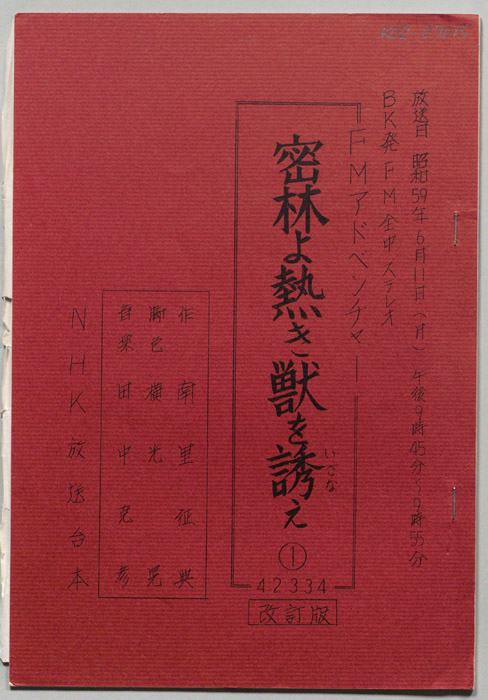 放送日 昭和59年6月11日(月) 午後9時45分〜9時55分
BK発 FM全中 ステレオ
FMアドベンチャー
密林よ熱き獣を誘え ①
いざな
42334
改訂版
作 南里征典
脚色 横光晃
音楽 田中克彦
NHK放送台本